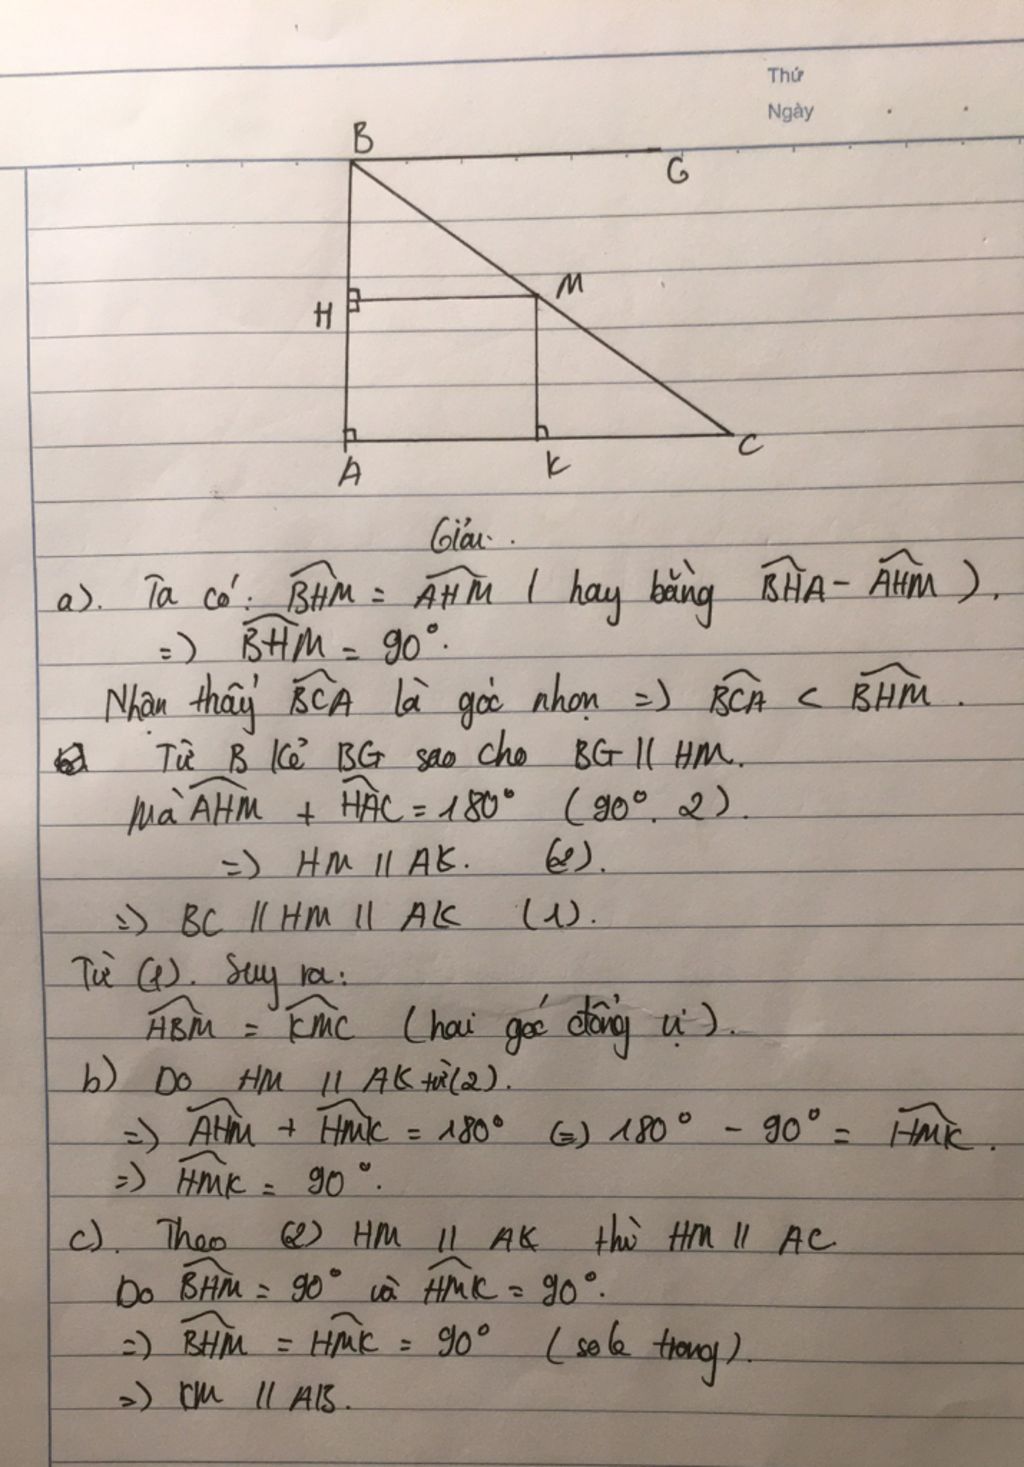 Thứ
Ngày
B
G
M
H
A
K
C
Giải.
a). Ta có: BHM = AHM ( hay bằng BHA - AHM ).
=> BHM = 90°.
Nhận thấy BCA là góc nhọn => BCA < BHM.
Từ B kẻ BG sao cho BG // HM.
Mà AHM + HAC = 180° (90°. 2).
=> HM // AK. (2).
=> BC // HM // AK (1).
Từ (1). Suy ra:
HBM = KMC (hai góc đồng vị).
b) Do HM // AK từ (2).
=> AHM + HMK = 180° (=) 180° - 90° = HMK.
=> HMK = 90°.
c). Theo (2) HM // AK thì HM // AC
Do BHM = 90° và HMK = 90°.
=> BHM = HMK = 90° (so le trong).
=> KM // AB.